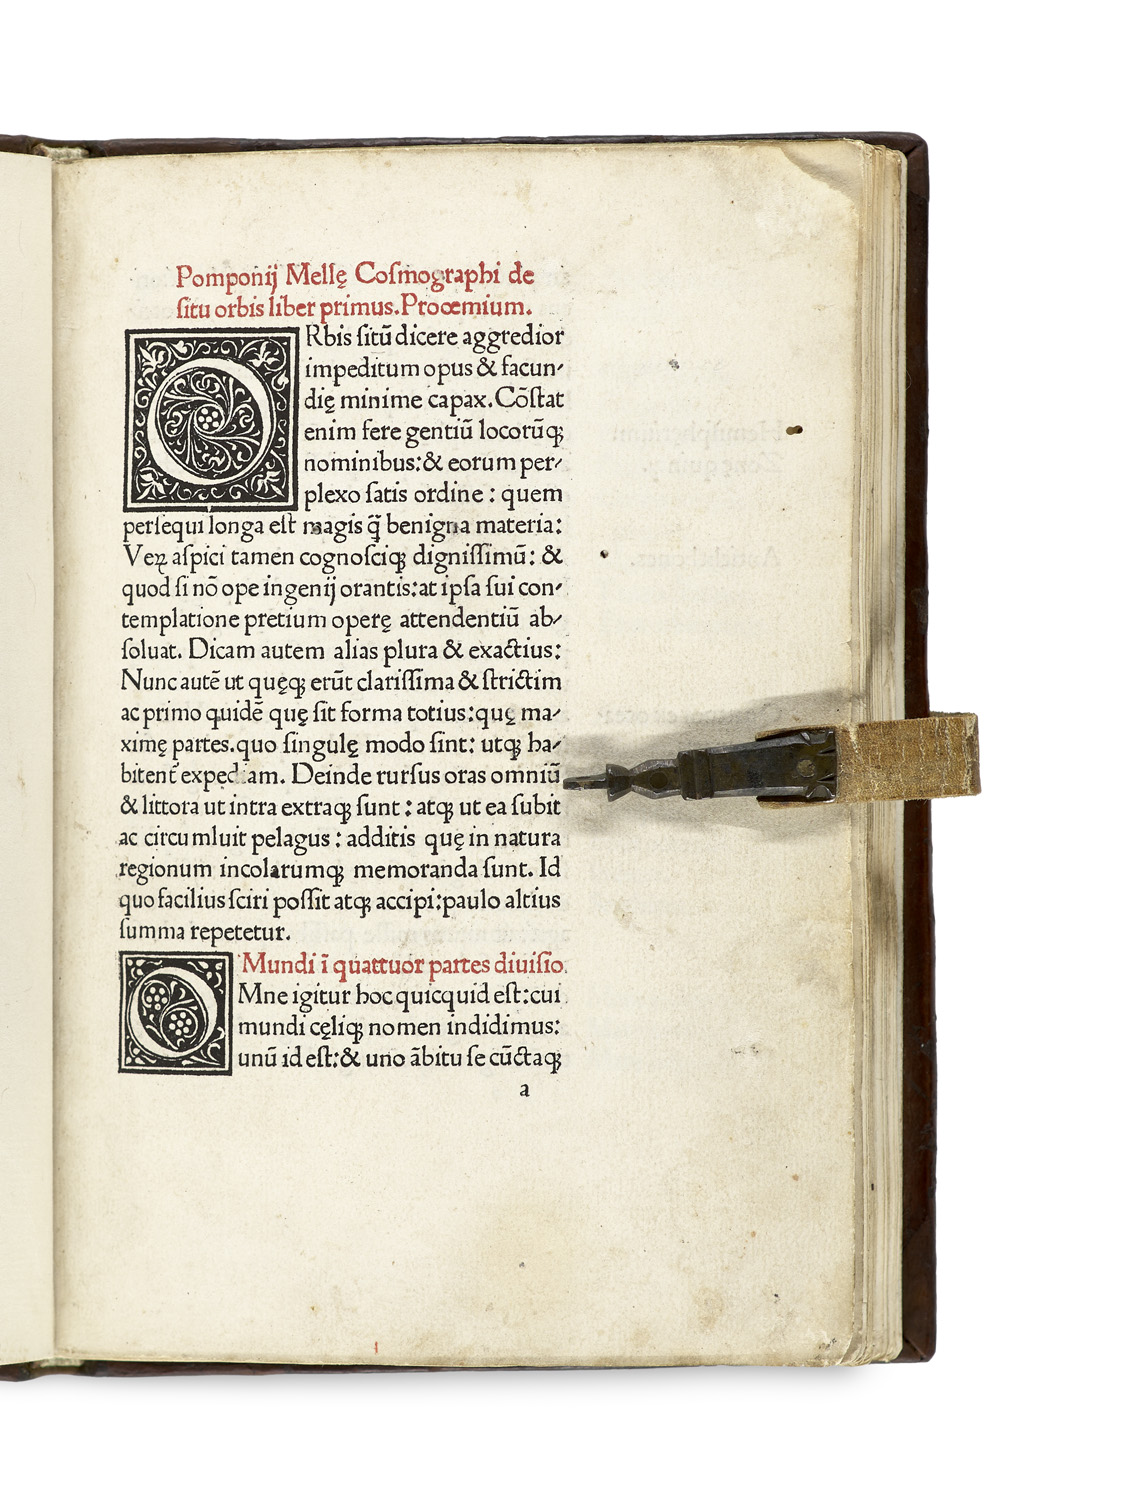 Pomponij Mellę Coſmographi de
ſitu orbis liber primus. Prooemium.
ORbis ſitū dicere aggredior
impeditum opus & facun-
dię minime capax. Cōſtat
enim fere gentiū locorūꝗ
nominibus: & eorum per-
plexo ſatis ordine: quem
perſequi longa eſt magis q̃ benigna materia:
Veꝝ aſpici tamen cognoſciꝗ digniſſimū: &
quod ſi nō ope ingenij orantis: at ipſa ſui con-
templatione pretium operę attendentiū ab-
ſoluat. Dicam autem alias plura & exactius:
Nunc autē ut quęꝗ erūt clariſſima & ſtrictim
ac primo quidē quę ſit forma totius: quę ma-
ximę partes. quo ſingulę modo ſint: utꝗ ha-
bitent̄ expediam. Deinde rurſus oras omniū
& littora ut intra extraꝗ ſunt: atꝗ ut ea ſubit
ac circumluit pelagus: additis quę in natura
regionum incolarumꝗ memoranda ſunt. Id
quo facilius ſciri poſſit atꝗ accipi: paulo altius
ſumma repetetur.
Mundi ī quattuor partes diuiſio.
OMne igitur hoc quicquid eſt: cui
mundi cęliꝗ nomen indidimus:
unū id eſt: & uno ābitu ſe cūctaꝗ
a